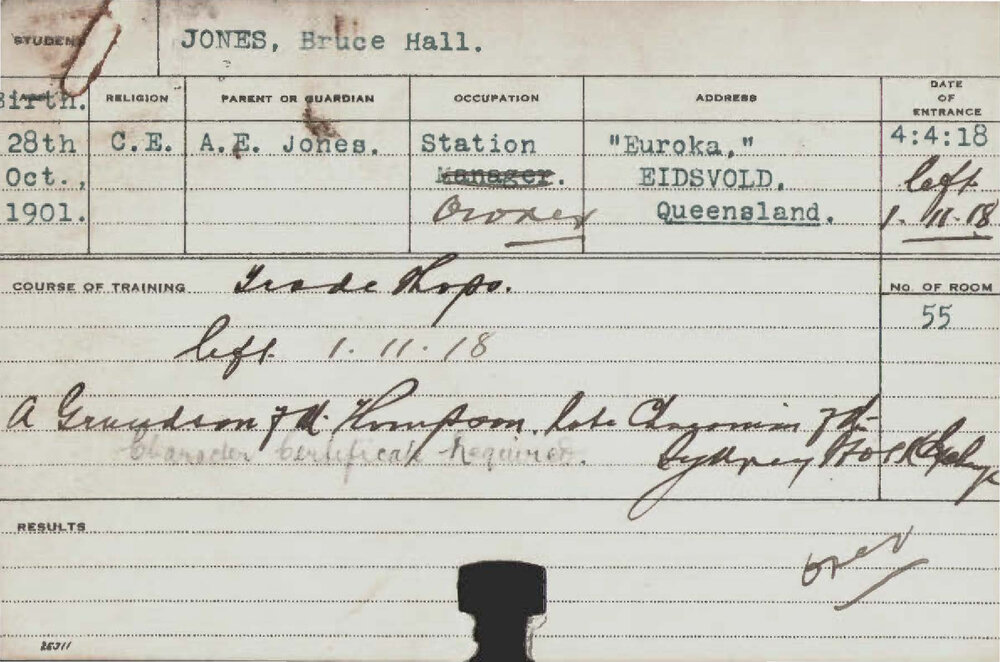 STUDENT JONES, Bruce Hall.
Birth. RELIGION PARENT OR GUARDIAN OCCUPATION ADDRESS DATE OF ENTRANCE
28th C.E. A.E. Jones. Station "Euroka," 4:4:18
Oct., Manager. EIDSVOLD, left
1901. Owner Queensland. 1. 11. 18
COURSE OF TRAINING Trade Shops. No. OF ROOM
55
left 1. 11. 18
A Grandson of Mr Thompson, late Chairman of the
Character Certificate Required. Sydney Stock Exchge
RESULTS
over
25711